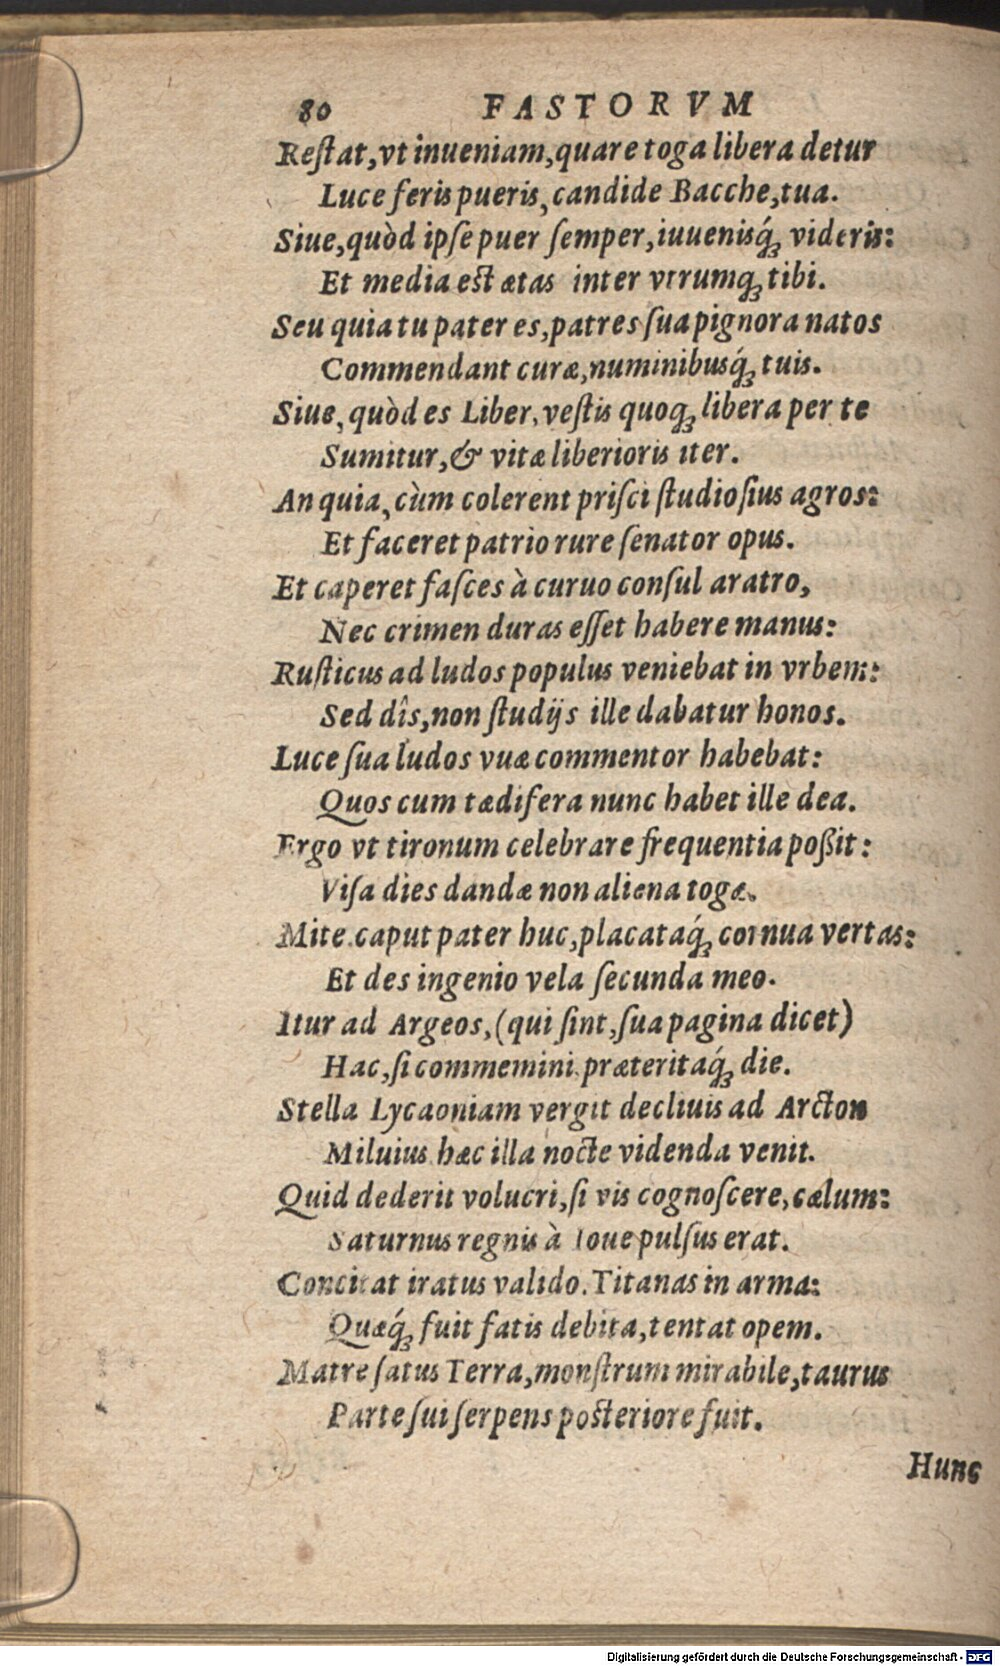 80 FASTORVM
Reſtat, vt inueniam, quare toga libera detur
Luce feris pueris, candide Bacche, tua.
Siue, quòd ipſe puer ſemper, iuuenisq́ꝫ videris:
Et media est ætas inter vtrumqꝫ tibi.
Seu quia tu pater es, patres ſua pignora natos
Commendant curæ, numinibusq́ꝫ tuis.
Siue, quòd es Liber, veſtis quoqꝫ libera per te
Sumitur, & vitæ liberioris iter.
An quia, cùm colerent priſci ſtudioſius agros:
Et faceret patrio rure ſenator opus.
Et caperet faſces à curuo conſul aratro,
Nec crimen duras eſſet habere manus:
Ruſticus ad ludos populus veniebat in vrbem:
Sed dîs, non ſtudijs ille dabatur honos.
Luce ſua ludos vuæ commentor habebat:
Quos cum tædifera nunc habet ille dea.
Ergo vt tironum celebrare frequentia poßit:
Viſa dies dandæ non aliena togæ.
Mite caput pater huc, placataq́ꝫ cornua vertas:
Et des ingenio vela ſecunda meo.
Itur ad Argeos, (qui ſint, ſua pagina dicet)
Hac, ſi commemini præteritaq́ꝫ die.
Stella Lycaoniam vergit decliuis ad Arcton
Miluius hæc illa nocte videnda venit.
Quid dederit volucri, ſi vis cognoſcere, cælum:
Saturnus regnis à Ioue pulſus erat.
Concitat iratus valido. Titanas in arma:
Quæq́ꝫ fuit fatis debita, tentat opem.
Matre ſatus Terra, monſtrum mirabile, taurus
Parte ſui ſerpens posteriore fuit.
Hunc
Digitalisierung gefördert durch die Deutsche Forschungsgemeinschaft - DFG